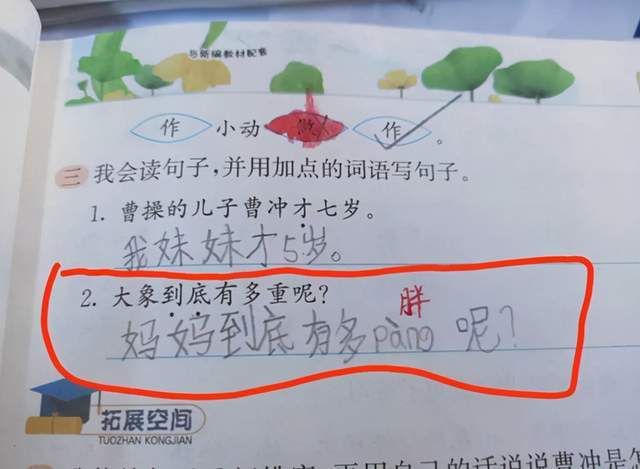 与新编教材配套
作 小动 做 作 。
三 我会读句子,并用加点的词语写句子。
1. 曹操的儿子曹冲才七岁。
我妹妹才5岁。
2. 大象到底有多重呢?
胖
妈妈到底有多pàng呢?
拓展空间
TUOZHAN KONGJIAN